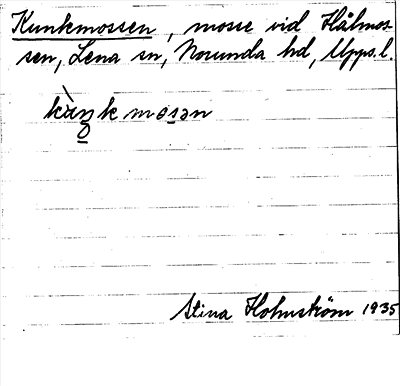 Kunkmossen, mosse vid Hålmos-
sen, Lena sn, Norunda hd, Upps. l.
kàŋkmosən
Stina Holmström 1935